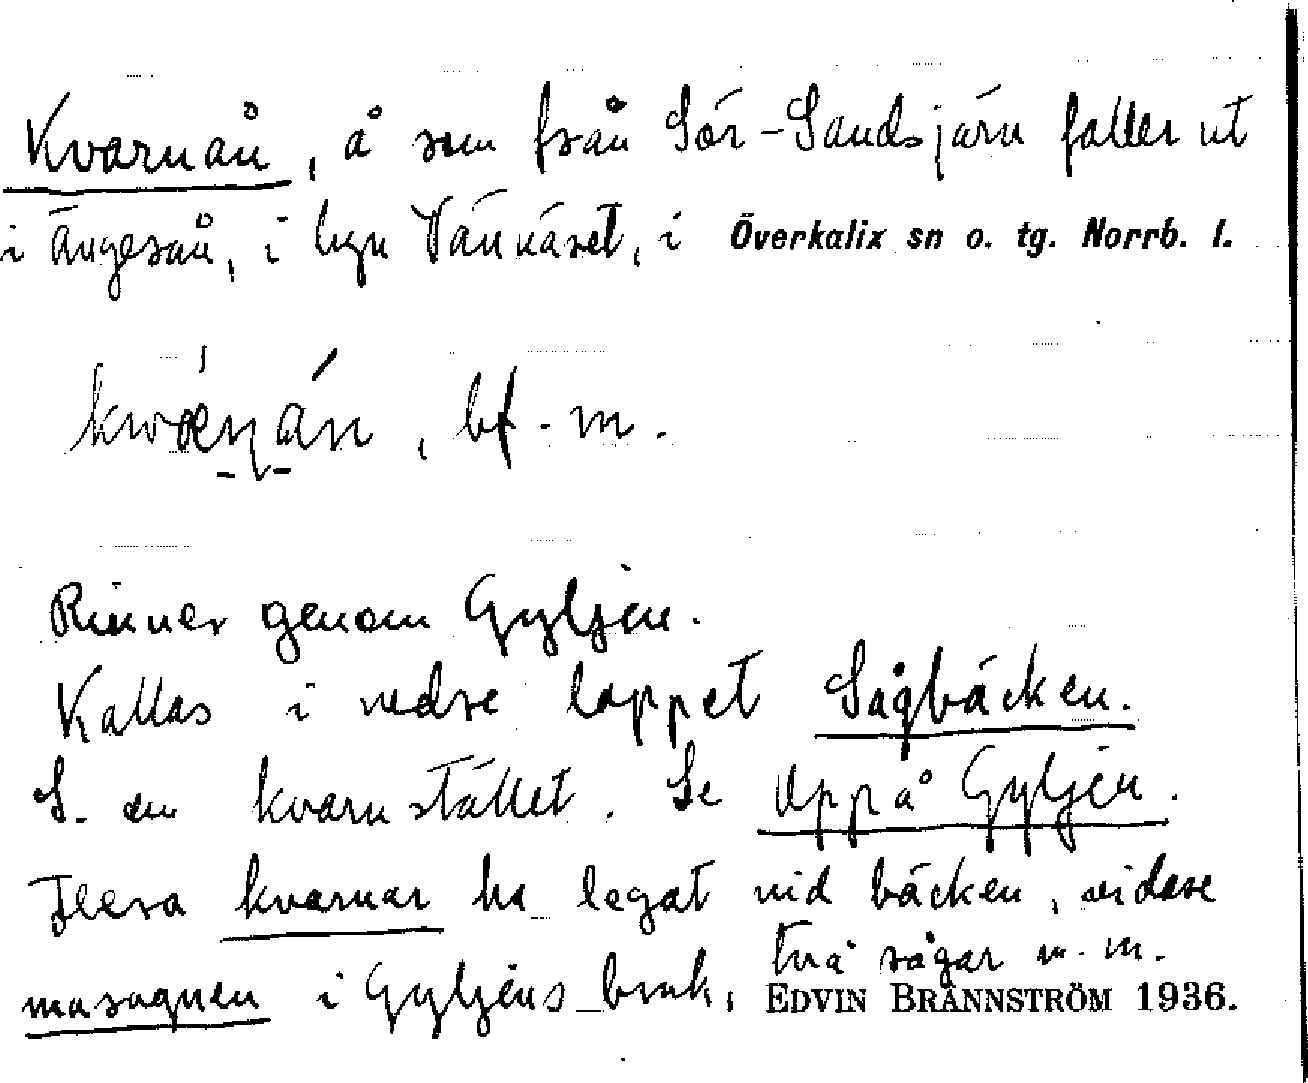 Kvarnån, å som från Sör-Sandsjärn faller ut
i Ängesån, i byn Vännäset, i Överkalix sn o. tg. Norrb. l.
kwæ̀ṇán, bf. m.
Rinner genom Gyljen.
Kallas i nedre loppet Sågbäcken.
S. en kvarnstället. Se Uppå Gyljen.
Flera kvarnar ha legat vid bäcken, vidare
två sågar m.m.
masugnen i Gyljens bruk, EDVIN BRÄNNSTRÖM 1936.